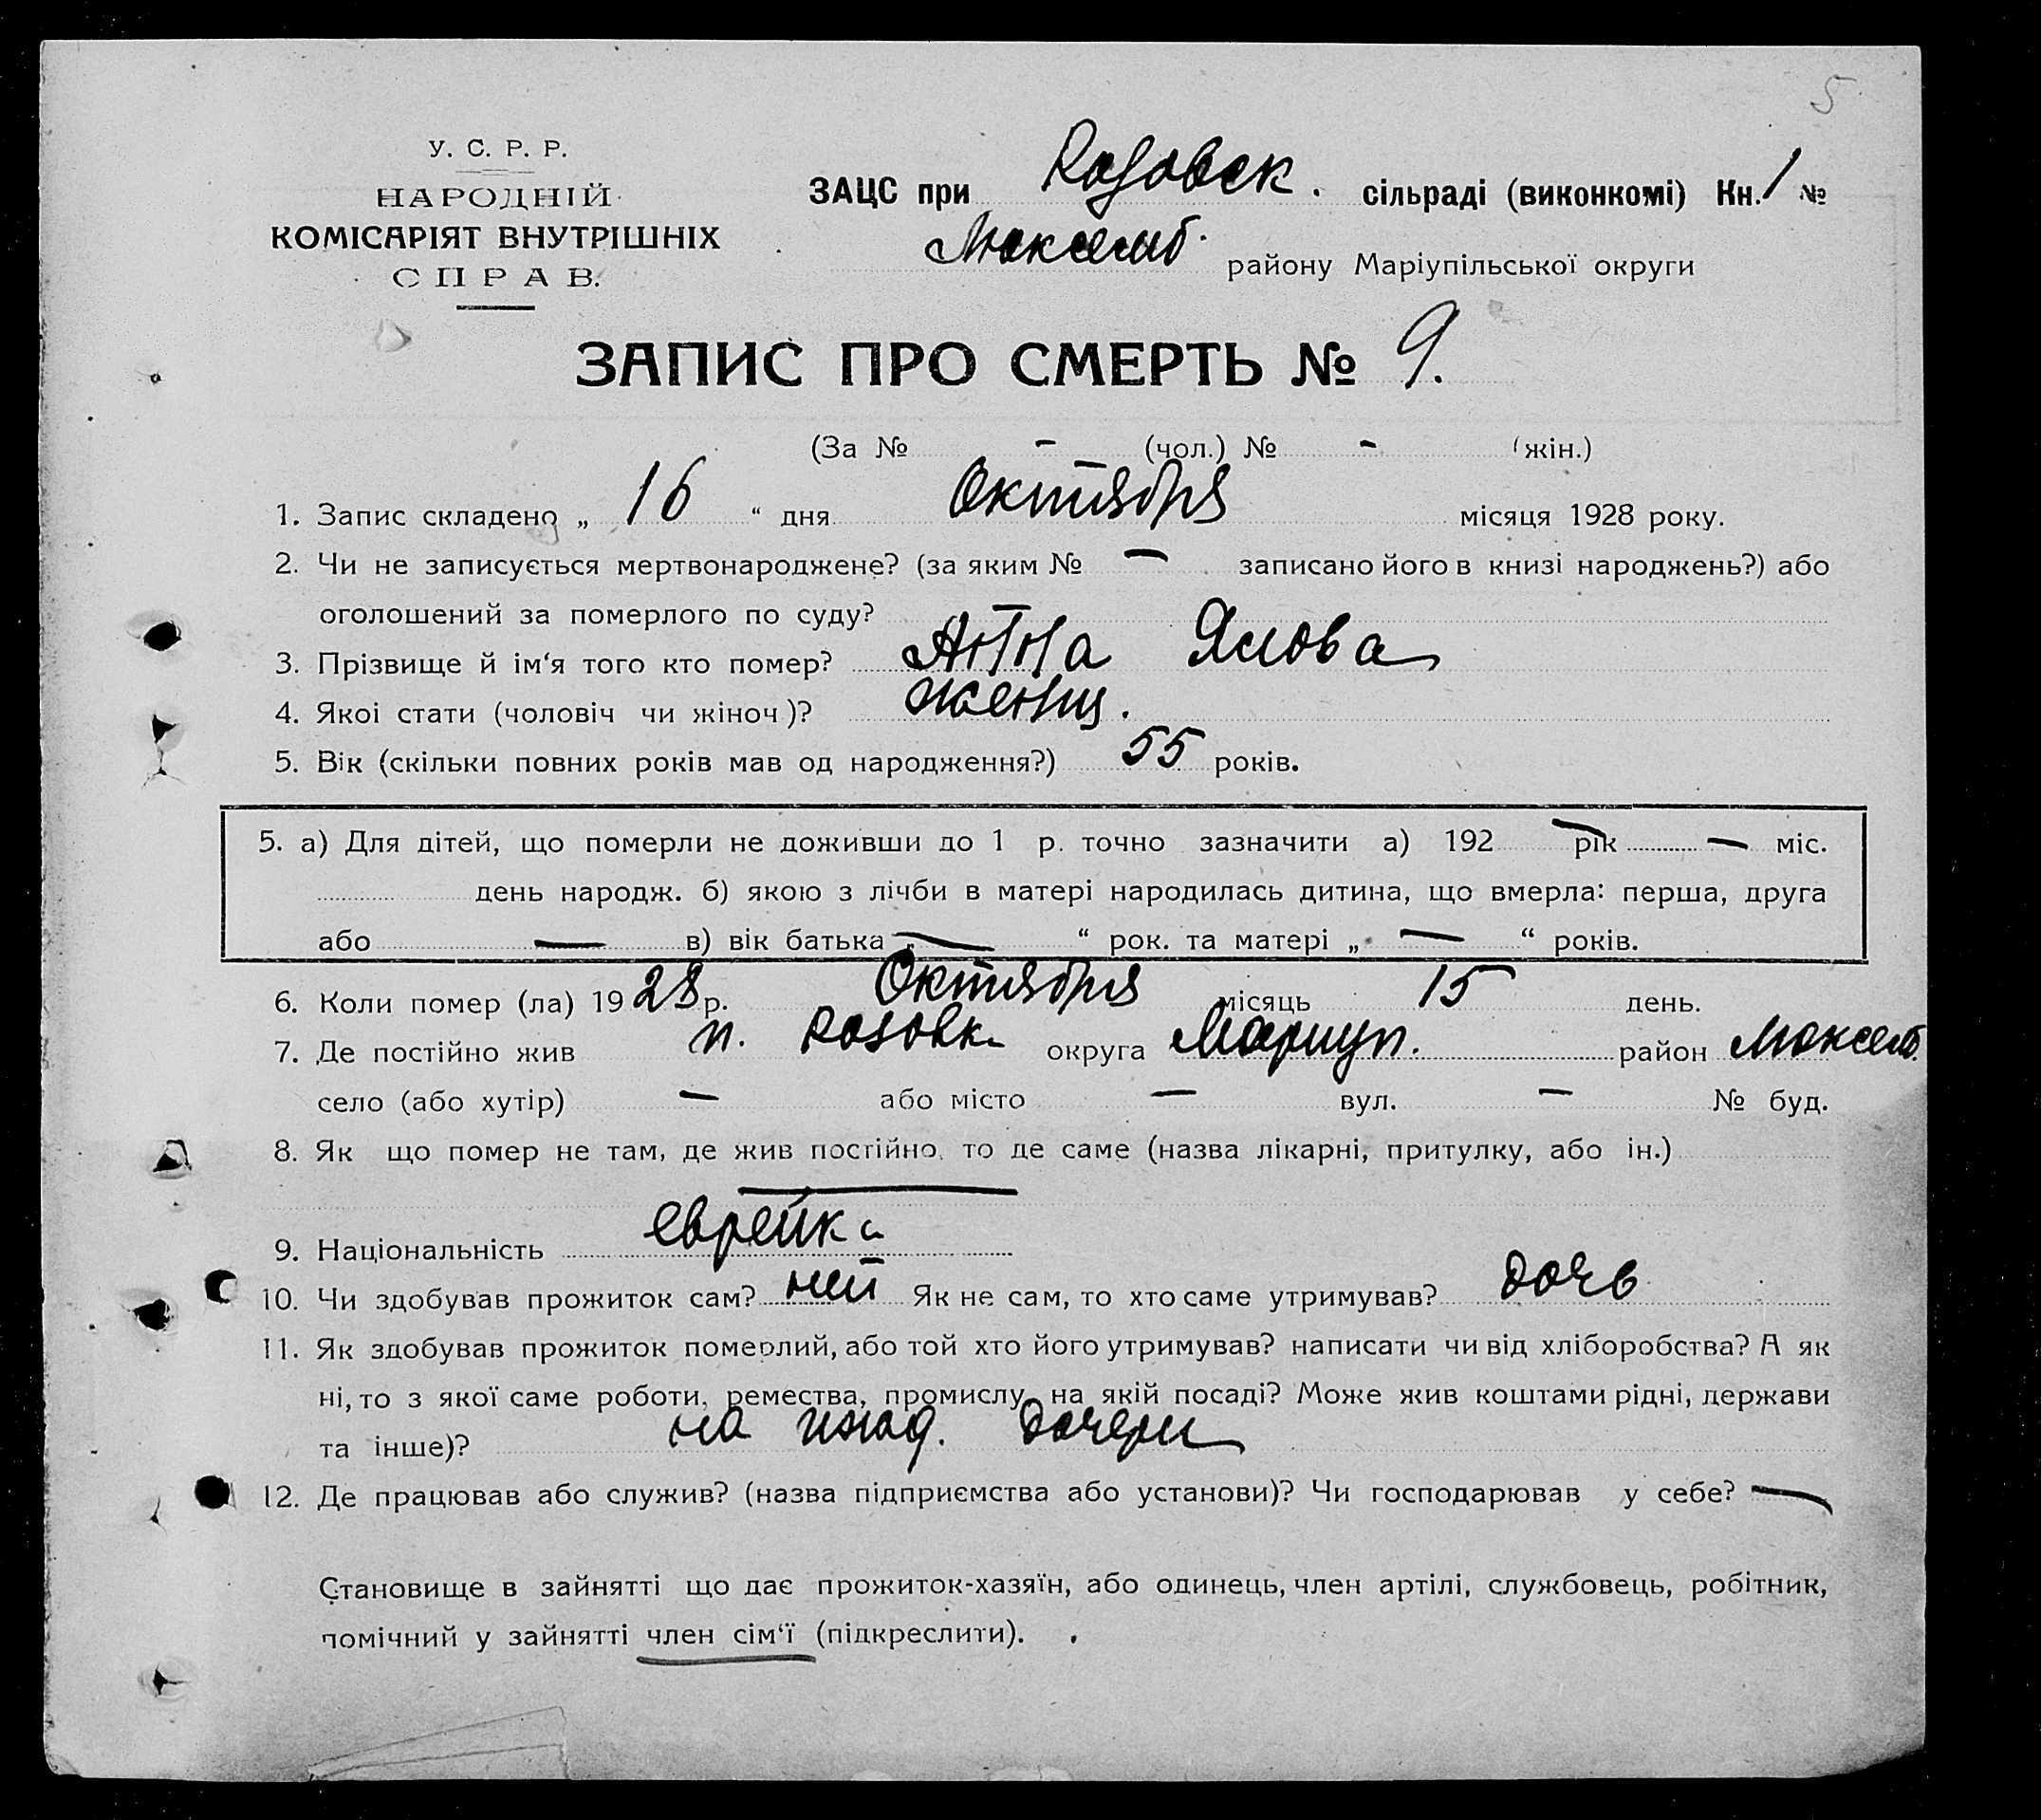 5
У. С. Р. Р.
НАРОДНІЙ
КОМІСАРІЯТ ВНУТРІШНІХ
СПРАВ.
ЗАЦС при Розовск. сільраді (виконкомі) Кн. 1 №
районy Маріупільської округи
ЗАПИС ПРО СМЕРТЬ № 9.
(За № - (чол.) № - (жін.)
1. Запис складено „ 16 “ дня Октября місяця 1928 року.
2. Чи не записується мертвонароджене? (за яким № — записано його в книзі народжень?) або
оголошений за померлого по суду? —
3. Прізвище й ім‘я того кто помер? Анна
4. Якоі стати (чоловіч чи жіноч)? женщ.
5. Вік (скільки повних років мав од народження?) 55 років.
5. а) Для дітей, що померли не доживши до 1 р. точно зазначити а) 192 — рік — міс.
день народж. б) якою з лічби в матері народилась дитина, що вмерла: перша, друга
або — в) вік батька „ — “ рок. та матері „ — “ років.
6. Коли помер (ла) 1928 р. Октября місяць 15 день.
7. Де постійно жив п. Розовка округа Мариуп. район
село (або хутір) — або місто — вул. — № буд.
8. Як що помер не там, де жив постійно, то де саме (назва лікарні, притулку, або ін.)
—
9. Національність еврейка
10. Чи здобував прожиток сам? нет Як не сам, то хто саме утримував? дочь
11. Як здобував прожиток померлий, або той хто його утримував? написати чи від хліборобства? А як
ні, то з якої саме роботи, ремества, промислу, на якій посаді? Може жив коштами рідні, держави
та інше)? на ижд. дочери
12. Де працював або служив? (назва підприємства або установи)? Чи господарював у себе? —
Становище в зайнятті що дає прожиток-хазяїн, або одинець, член артілі, службовець, робітник,
помічний у зайнятті член сім‘ї (підкреслити).